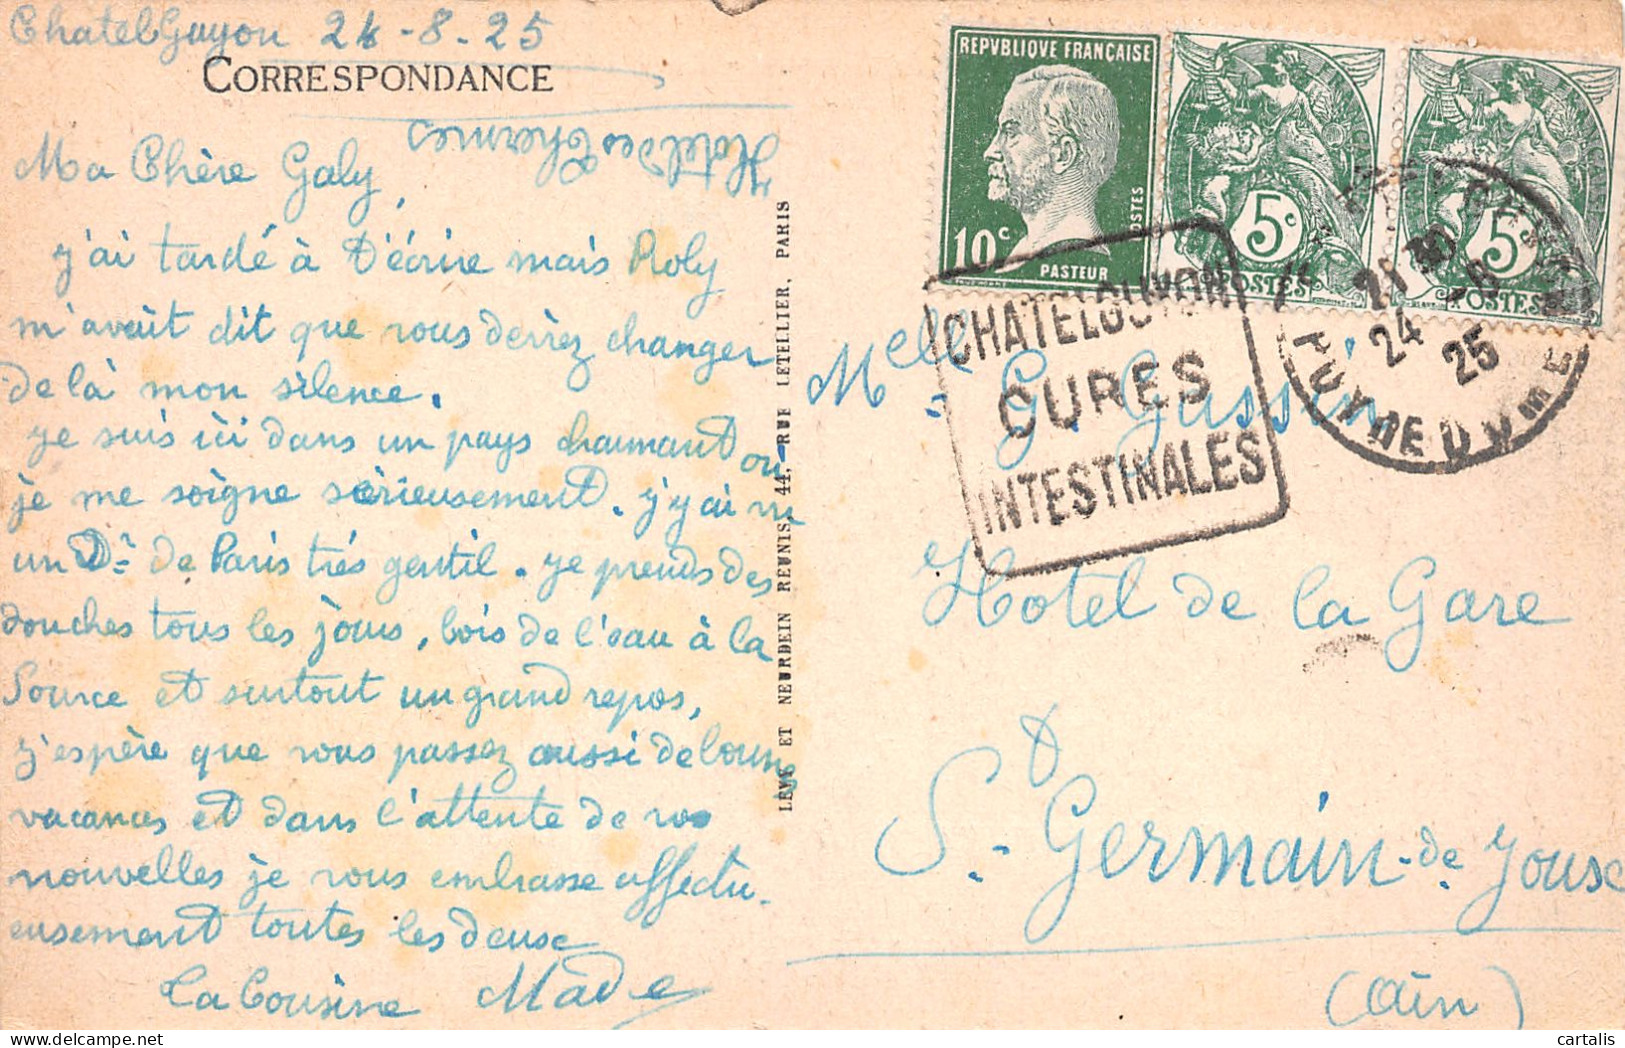 ChatelGuyon 24-8-25
CORRESPONDANCE
Hotel des Thermes
Ma Chère Galy,
j'ai tardé à t'écrire mais Roly
m'avait dit que vous deviez changer
de là mon silence.
je suis ici dans un pays charmant où
je me soigne sérieusement. j'y ai vu
un Dr de Paris très gentil. je prends des
douches tous les jours, bois de l'eau à la
Source et surtout un grand repos,
j'espère que vous passez aussi de bonnes
vacances et dans l'attente de vos
nouvelles je vous embrasse affectu-
eusement toutes les deux
La Cousine Made
LEVY ET NEURDEIN REUNIS, 44, RUE LETELLIER, PARIS
REPVBLIQVE FRANÇAISE
10c
PASTEUR
POSTES
5c
POSTES
5c
POSTES
CHATELGUYON
CURES
INTESTINALES
21 30
24 -8
25
PUY DE DOME
Melle G. Gassin
Hotel de la Gare
St Germain-de Joux
(Ain)
cartalis